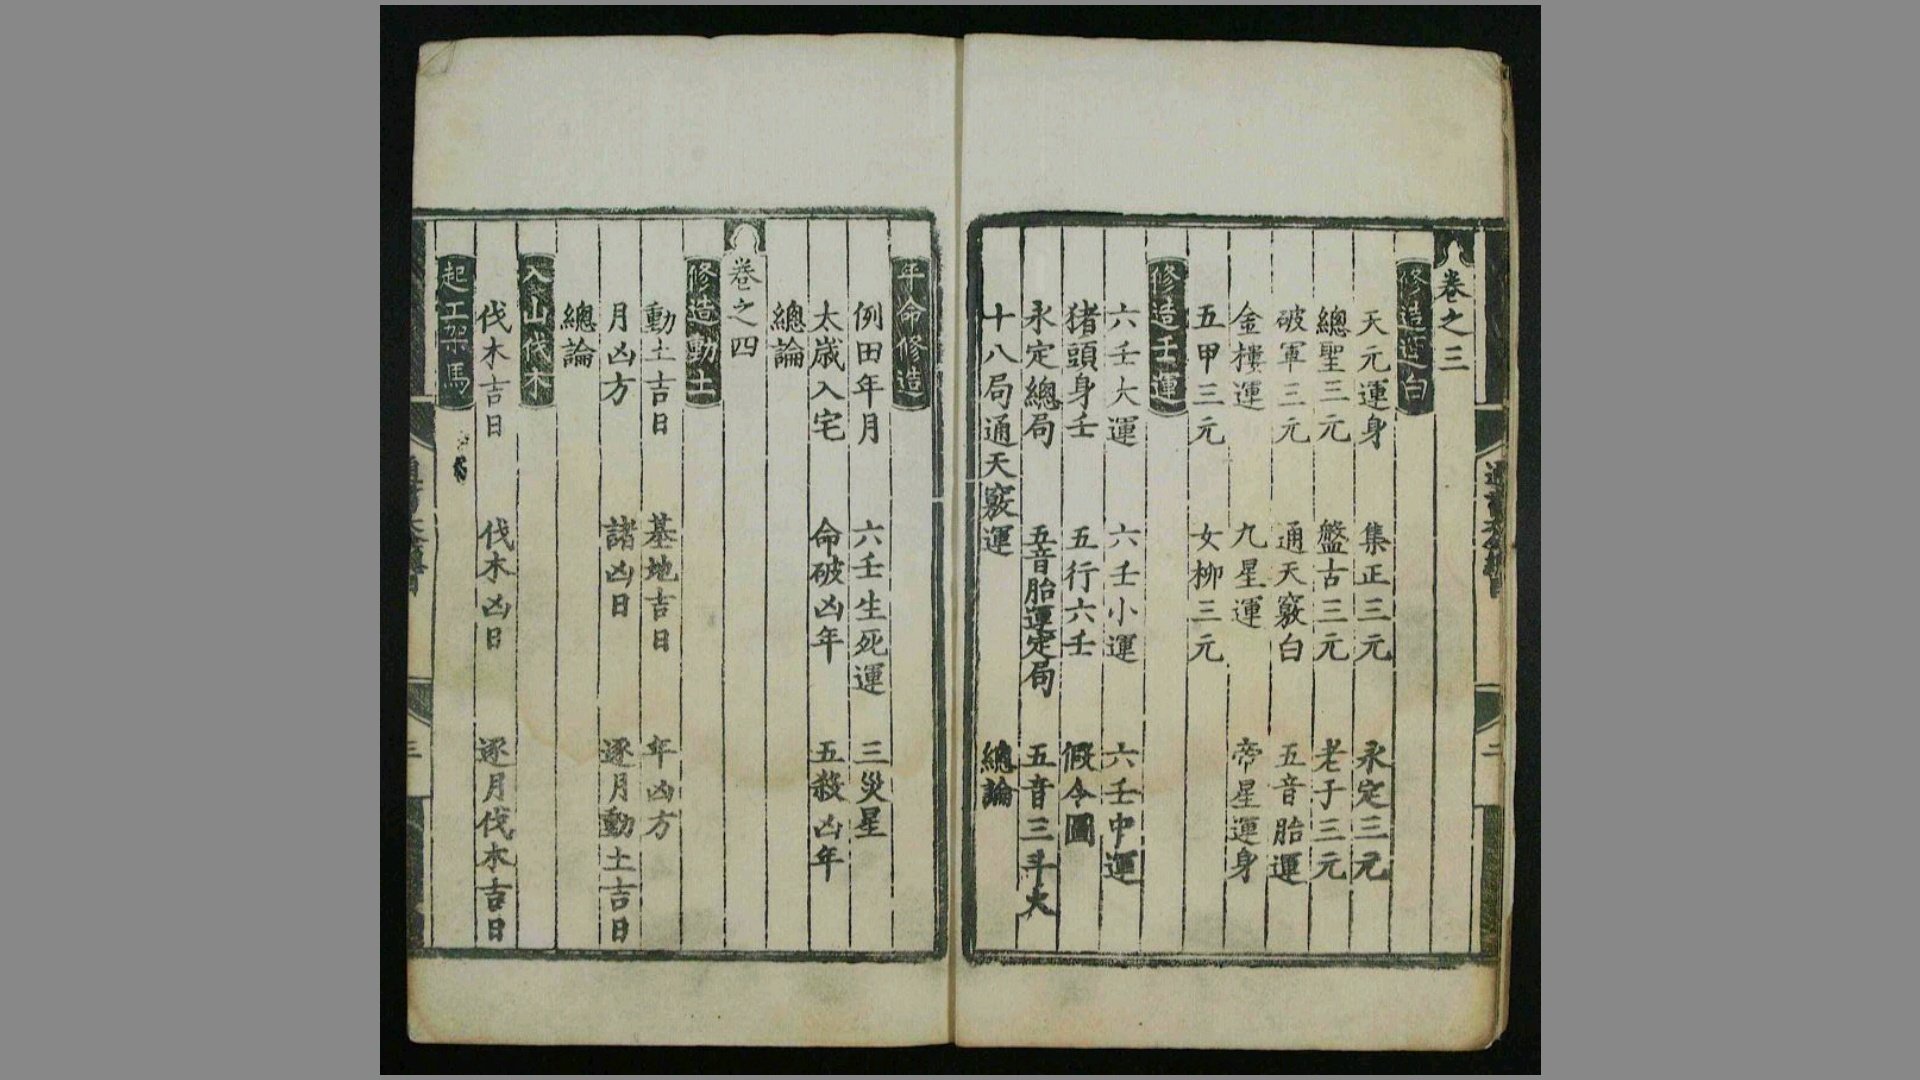 卷之三
修造運白
天元運身　集正三元　永定三元
總聖三元　盤古三元　老子三元
破軍三元　通天竅白　五音胎運
金樓運　九星運　帝星運身
五甲三元　女柳三元
修造壬運
六壬大運　六壬小運　六壬中運
猪頭身壬　五行六壬　假令圖
永定總局　五音胎運定局　五音三斗火
十八局通天竅運　總論
年命修造
例田年月　六壬生死運　三災星
太歲入宅　命破凶年　五殺凶年
總論
卷之四
修造動土
動土吉日　基地吉日　年凶方
月凶方　諸凶日　逐月動土吉日
總論
入山伐木
伐木吉日　伐木凶日　逐月伐木吉日
起工架馬
二
三